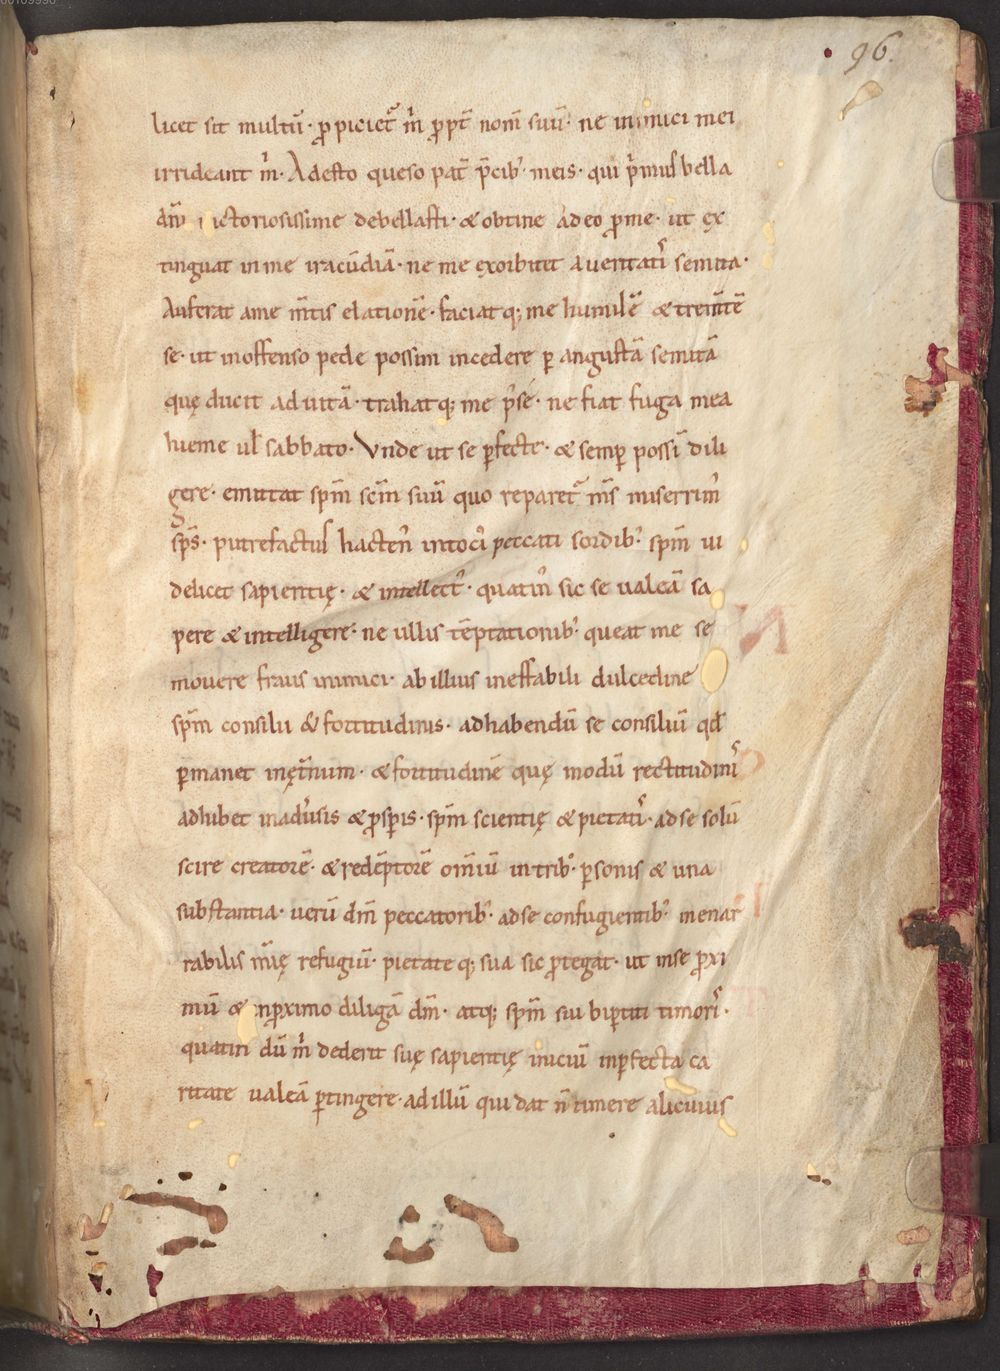 96.
licet sit multū· ꝓpiciet᷑ m̅ ꝓpt̅ nom̅ suū· ne inimici mei
irrideant m̅· Adesto queso pat̅ p̅cib; meis· qui p̅mus bella
victoriosissime debellasti· & obtine adeo ꝓme· ut ex
tinguat inme iracūdiā· ne me exorbitet aueritatis semita·
Auferat ame m̅tis elationē· faciatq; me humilē & trem̅tē
se· ut inoffenso pede possim incedere ꝑ angustā semitā
quę ducit aduitā· trahatq; me p̅ se· ne fiat fuga mea
hieme ul̅ sabbato· Vnde ut se ꝑfecte· & semꝑ possī dili
gere· emittat sp̅m sc̅m suū quo reparet᷑ m̅s miserrim᷒
sp̅s· putrefactus hacten᷒ intoci peccati sordib; sp̅m ui
delicet sapientię· & intellect᷒· quatin᷒ sic se ualeā sa
pere & intelligere· ne ullis tēptationib; queat me se
mouere fraus inimici· abillius ineffabili dulcedine
sp̅m consilii & fortitudinis· adhabendū se consiliū qd̅
ꝑmanet inęt̅num· & fortitudinē quę modū rectitudinis
adhibet inadu̅sis & ꝓsꝑis· sp̅m scientię & pietatis· adse solū
scire creatorē· & redēptorē om̅iū intrib; ꝑsonis & una
substantia· uerū dm̅ peccatorib; adse confugientib; inenar
rabilis mi̅ę refugiū· pietateq; sua sic ꝓtegat· ut inse ꝓxi
mū & inꝓximo diligā dm̅· atq; sp̅m sui biꝑtiti timoris·
quatin dū m̅ dederit suę sapientię iniciū inꝑfecta ca
ritate ualeā ꝑtingere· adillū qui dat n̅ timere alicuius